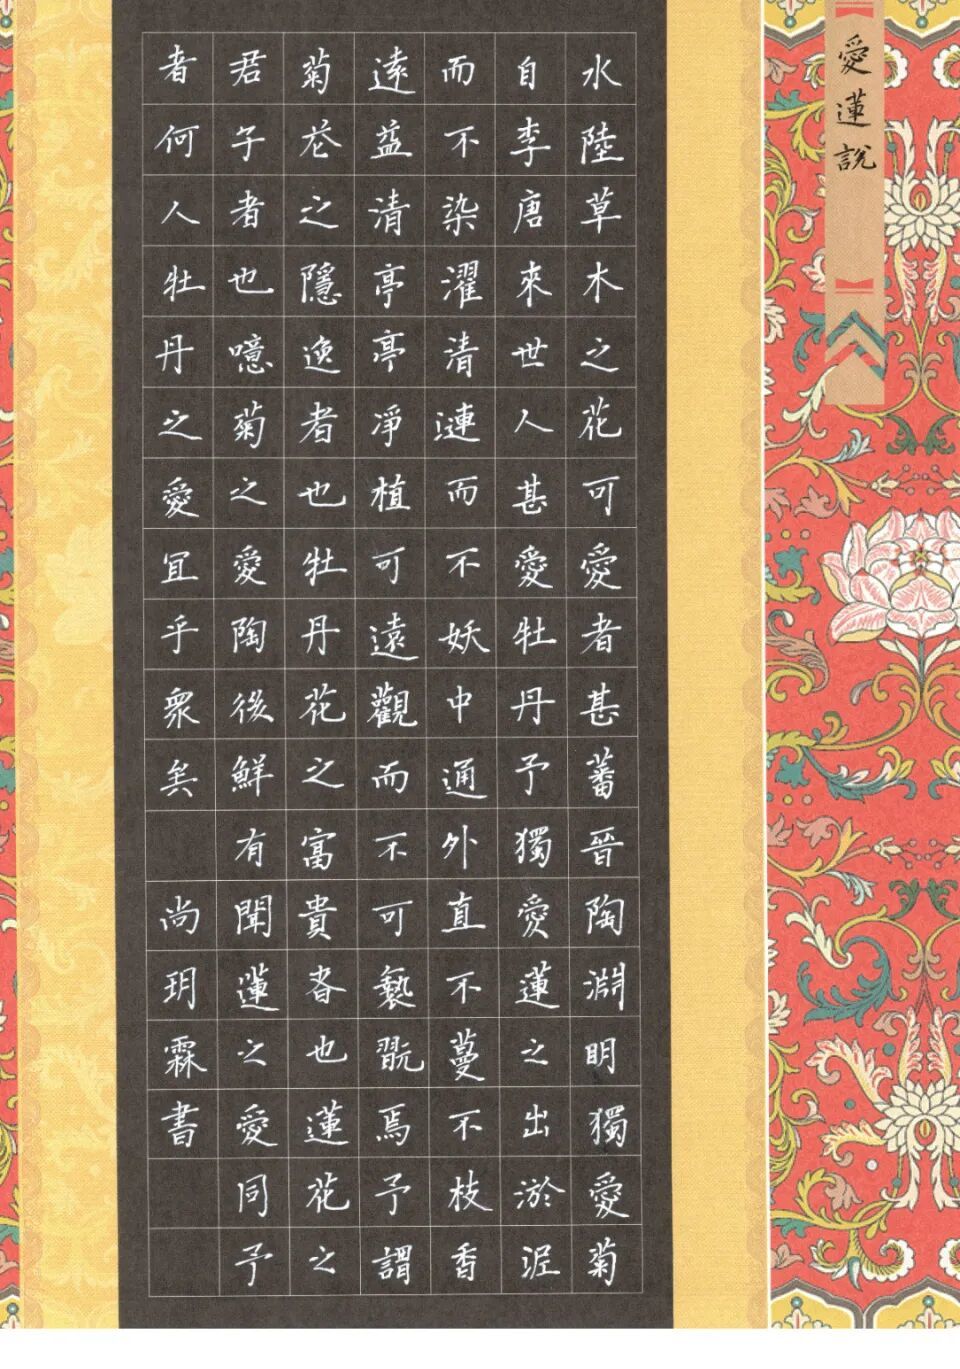 愛蓮說
水陸草木之花可愛者甚蕃晉陶淵眀獨愛菊
自李唐來世人甚愛牡丹予獨愛蓮之出淤泥
而不染濯清漣而不妖中通外直不蔓不枝香
遠益清亭亭凈植可遠觀而不可褻翫焉予謂
菊花之隱逸者也牡丹花之富貴者也蓮花之
君子者也噫菊之愛陶後鮮有聞蓮之愛同予
者何人牡丹之愛宜乎眾矣 尚玥霖書